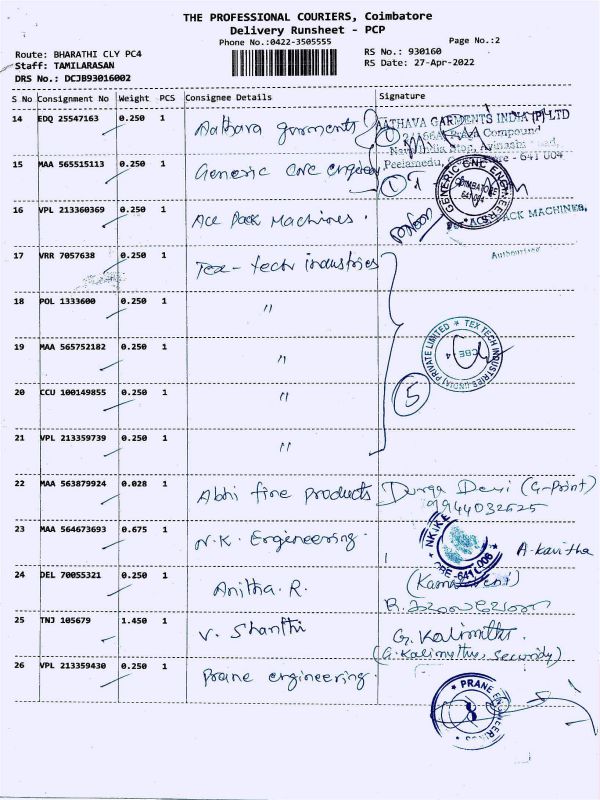 THE PROFESSIONAL COURIERS, Coimbatore
Delivery Runsheet - PCP
Phone No.:0422-3505555
Page No.:2
Route: BHARATHI CLY PC4
RS No.: 930160
Staff: TAMILARASAN
RS Date: 27-Apr-2022
DRS No.: DCJB93016002
S No Consignment No Weight PCS Consignee Details Signature
14 EDQ 25547163 0.250 1 Aathava garments
AATHAVA GARMENTS INDIA (P) LTD
Compound
Peelamedu, 641 004
15 MAA 565515113 0.250 1 Generic cnc
GENERIC CNC ENGINEERS
COIMBATORE
641 004
16 VPL 213360369 0.250 1 Ace Pack Machines.
PACK MACHINES,
Authorised
17 VRR 7057638 0.250 1 Tex-tech industries
18 POL 1333600 0.250 1 "
19 MAA 565752182 0.250 1 "
TEX TECH INDUSTRIES (INDIA) PRIVATE LIMITED
CBE - 4
20 CCU 100149855 0.250 1 "
5
21 VPL 213359739 0.250 1 "
22 MAA 563879924 0.028 1 Abhi fine products Durga Devi (G-Print)
9944032625
23 MAA 564673693 0.675 1 N.K. Engineering.
A. Kavitha
24 DEL 70055321 0.250 1 Anitha. R.
25 TNJ 105679 1.450 1 V. Shanthi G. Kalimuthu.
(G. Kalimuthu, Security)
26 VPL 213359430 0.250 1 Prane engineering.
PRANE ENGINEERING
8